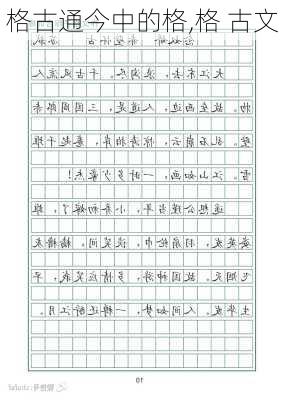 格古通今中的格,格 古文
大江东去，浪淘尽。千古风流人
物。故垒西边，人道是，三国周郎赤
壁。乱石崩云，惊涛拍岸，卷起千堆
雪。江山如画，一时多少豪杰！
遥想公瑾当年，小乔初嫁了，雄
姿英发，羽扇纶巾，谈笑间。樯橹灰
飞烟灭。故国神游，多情应笑我，早
生华发。人间如梦，一樽还酹江月。